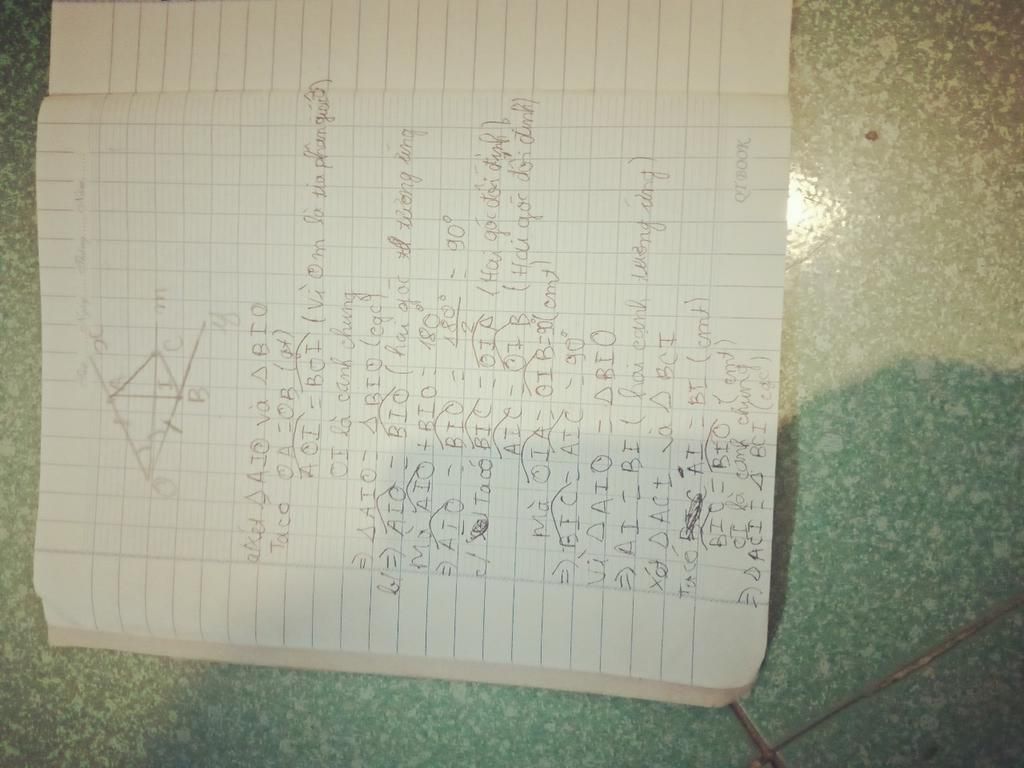 x
A
m
C
I
O
B
y
a) Xét △AIO và △BIO
Ta có OA=OB (gt)
AOI = BOI (Vì Om là tia phân giác)
OI là cạnh chung
=> △AIO = △BIO (cgc)
b) => AIO = BIO (hai góc tương ứng
Mà AIO + BIO = 180°
=> AIO = BIO = 180°/2 = 90°
c) Ta có BIC = OIA (Hai góc đối đỉnh)
AIC = OIB (Hai góc đối đỉnh)
Mà OIA = OIB (cmt)
=> BIC = AIC = 90°
Vì △AIO = △BIO
=> AI = BI (hai cạnh tương ứng)
Xét △ACI và △BCI
Ta có AI = BI (cmt)
BIC = (cmt)
CI là cạnh chung
=> △ACI = △BCI (cgc)
QIBOOK